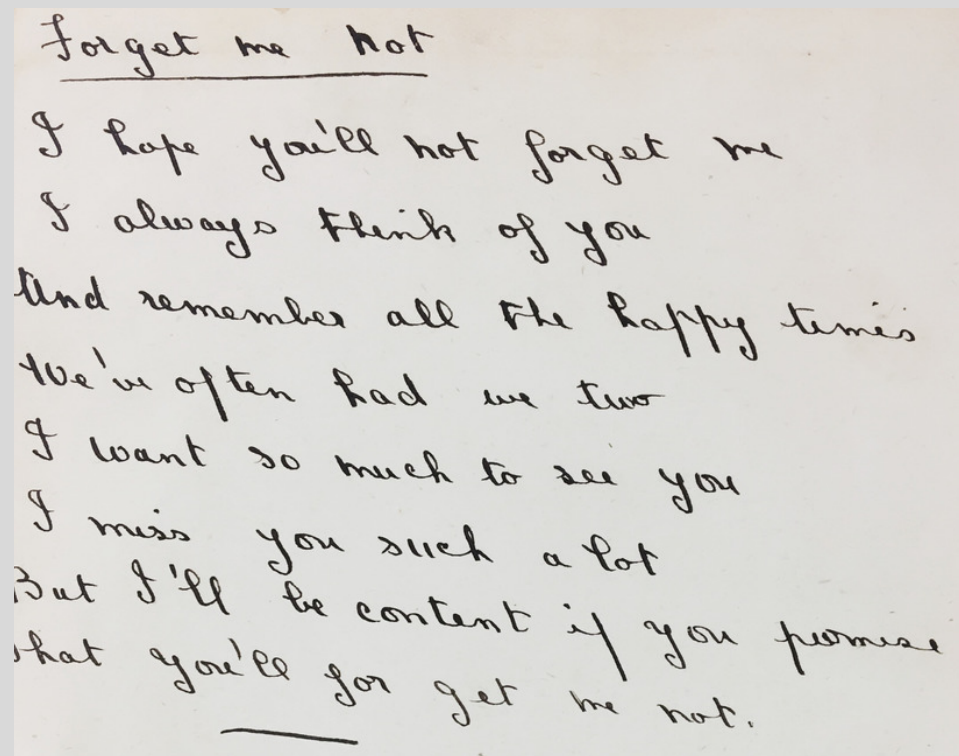 Forget me not
I hope you'll not forget me
I always think of you
And remember all the happy times
We've often had we two
I want so much to see you
I miss you such a lot
But I'll be content if you promise
that you'll for get me not.